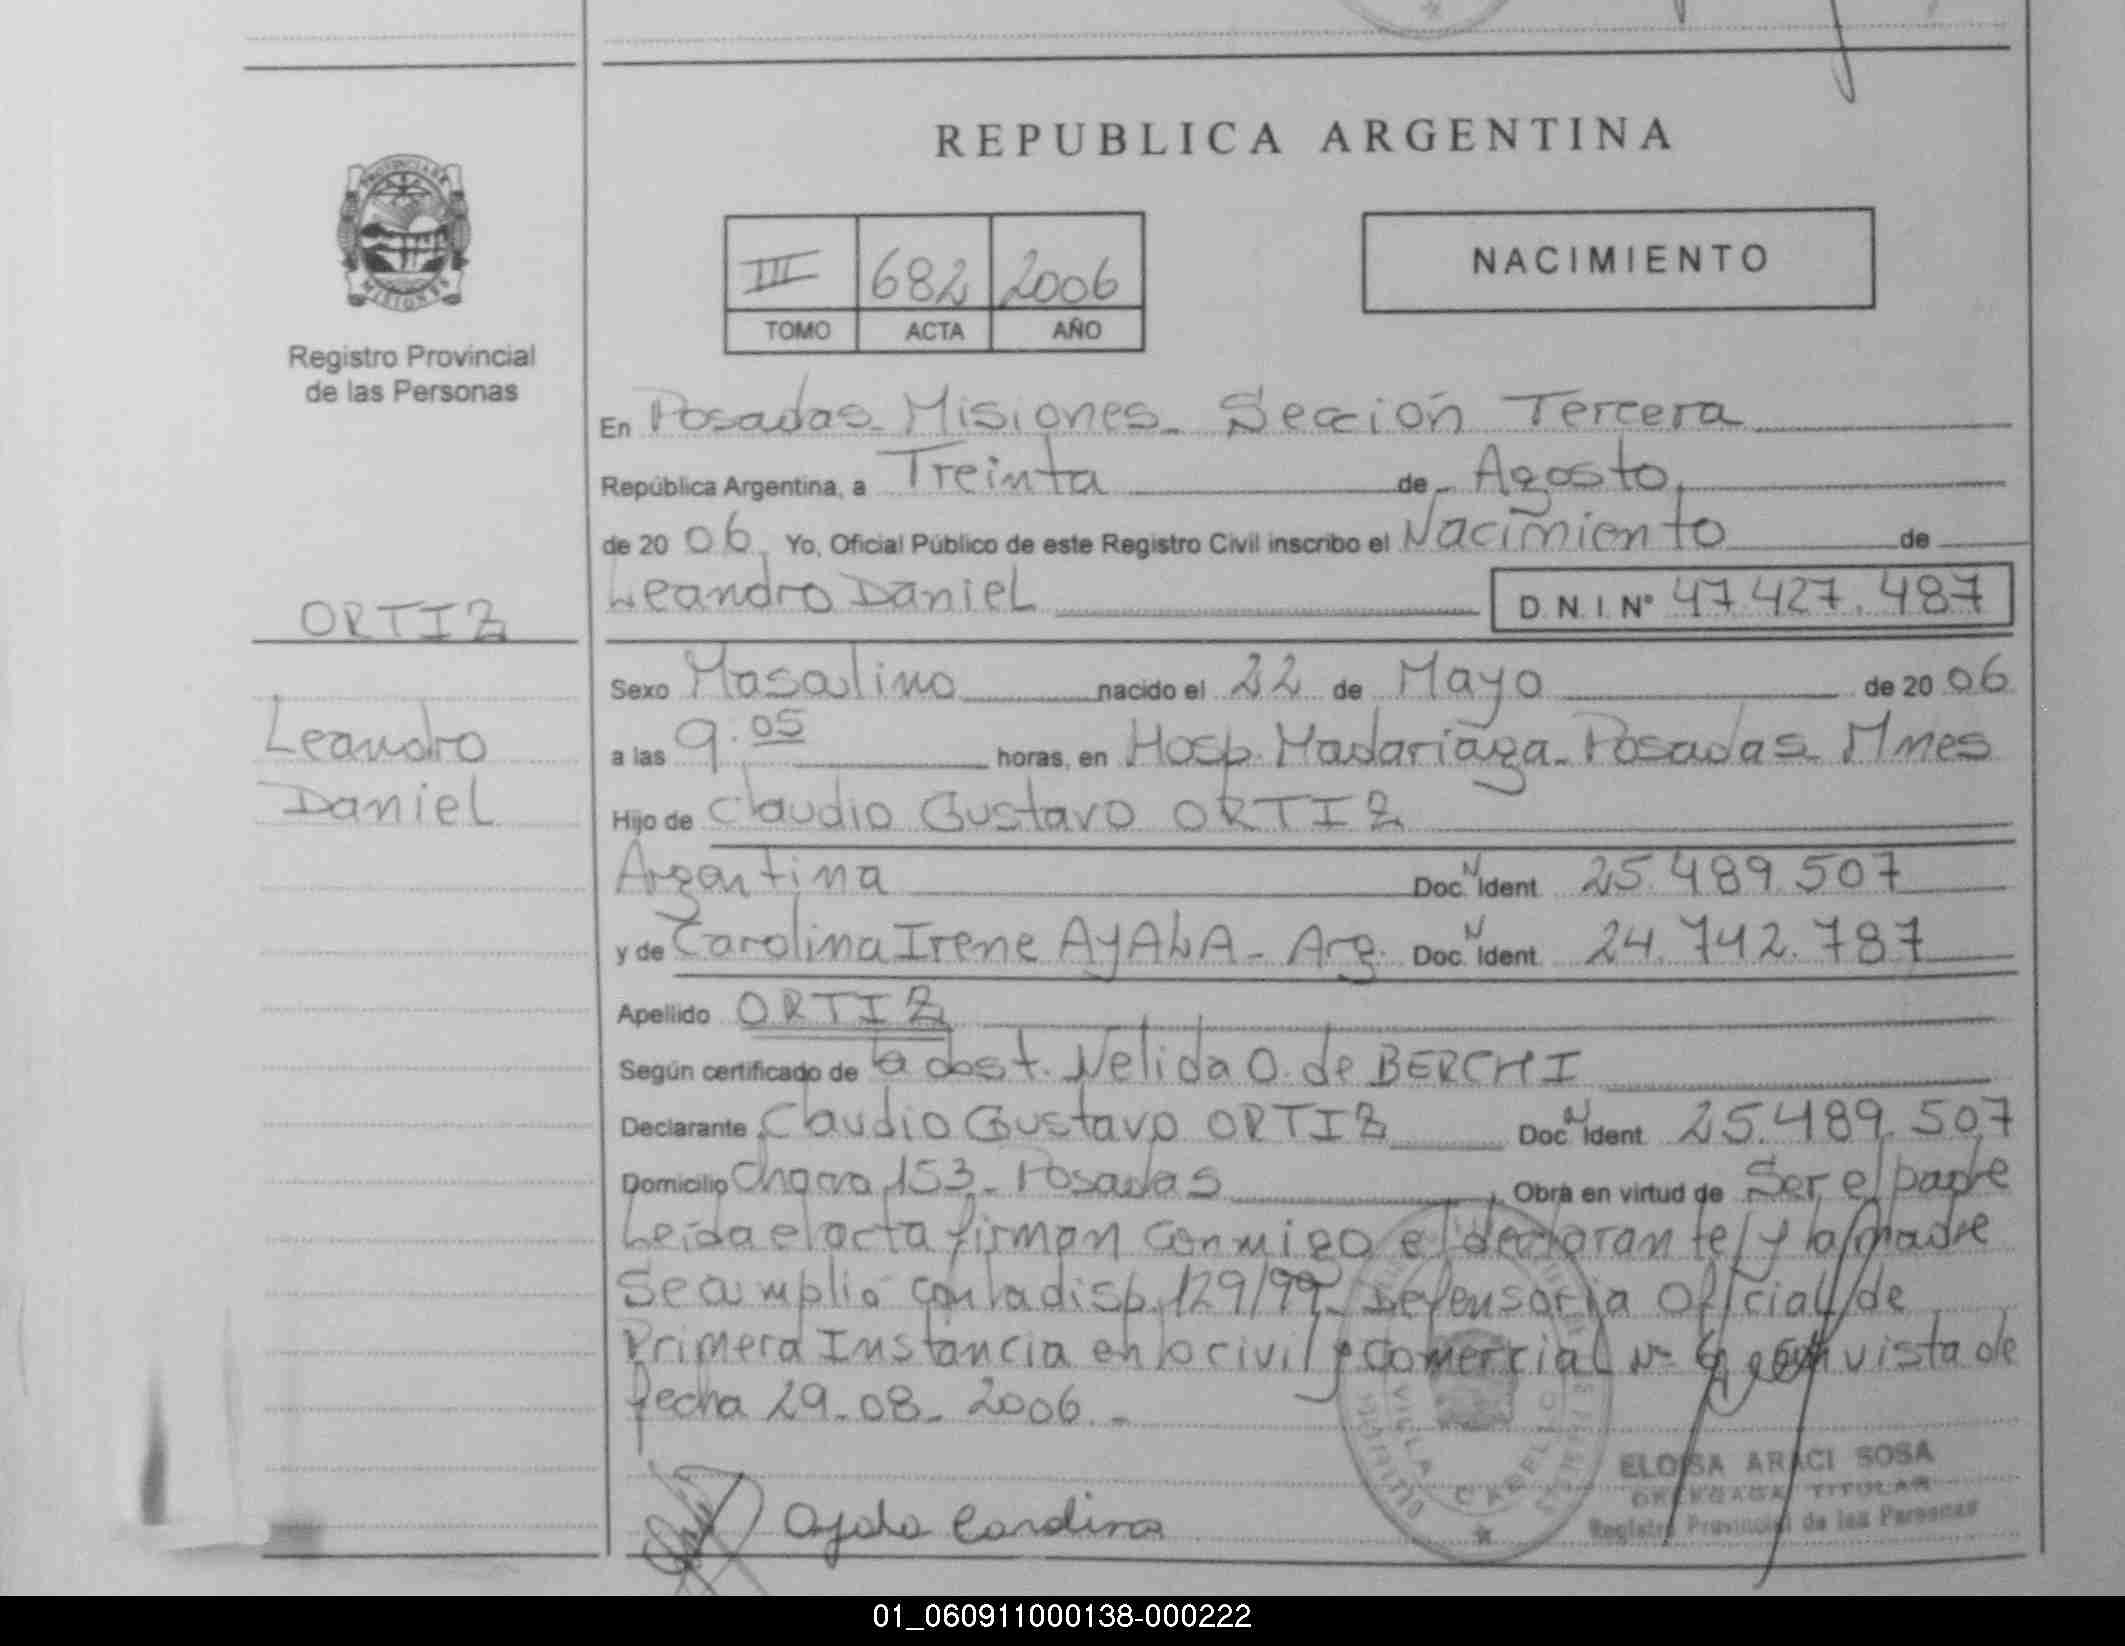 REPUBLICA ARGENTINA
PROVINCIA DE
MISIONES
Registro Provincial
de las Personas
III 682 2006
TOMO ACTA AÑO
NACIMIENTO
En Posadas - Misiones - Sección Tercera
República Argentina, a Treinta de Agosto
de 2006 Yo, Oficial Público de este Registro Civil inscribo el Nacimiento de
Leandro Daniel D.N.I. Nº 47.427.487
ORTIZ
Leandro
Daniel
Sexo Masculino nacido el 22 de Mayo de 2006
a las 9.05 horas, en Hosp. Madariaga - Posadas - Mnes
Hijo de Claudio Gustavo ORTIZ
Argentina Doc. N Ident 25.489.507
y de Carolina Irene AYALA - Arg. Doc. N Ident. 24.742.787
Apellido ORTIZ
Según certificado de la obst. Nelida O. de BERCHI
Declarante Claudio Gustavo ORTIZ Doc. N Ident 25.489.507
Domicilio Chacra 153 - Posadas Obra en virtud de Ser el padre
Leida el acta firman conmigo el declarante y la madre
Se cumplio con la disp. 129/99 - Defensoria Oficial de
Primera Instancia en lo civil y Comercial Nº vista de
fecha 29-08-2006.-
Ayala Carolina
VILLA CABELLO
ELOISA ARACI SOSA
DELEGADA TITULAR
Registro Provincial de las Personas
01_060911000138-000222